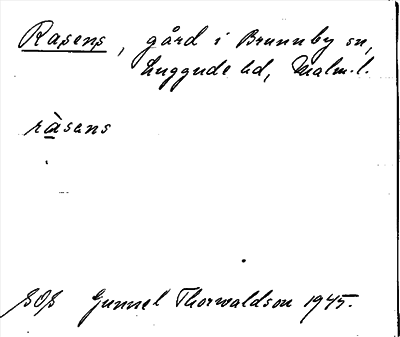 Rasens, gård i Brunnby sn,
Luggude hd, Malm. l.
ràsans
SOS Gunnel Thorwaldson 1945.